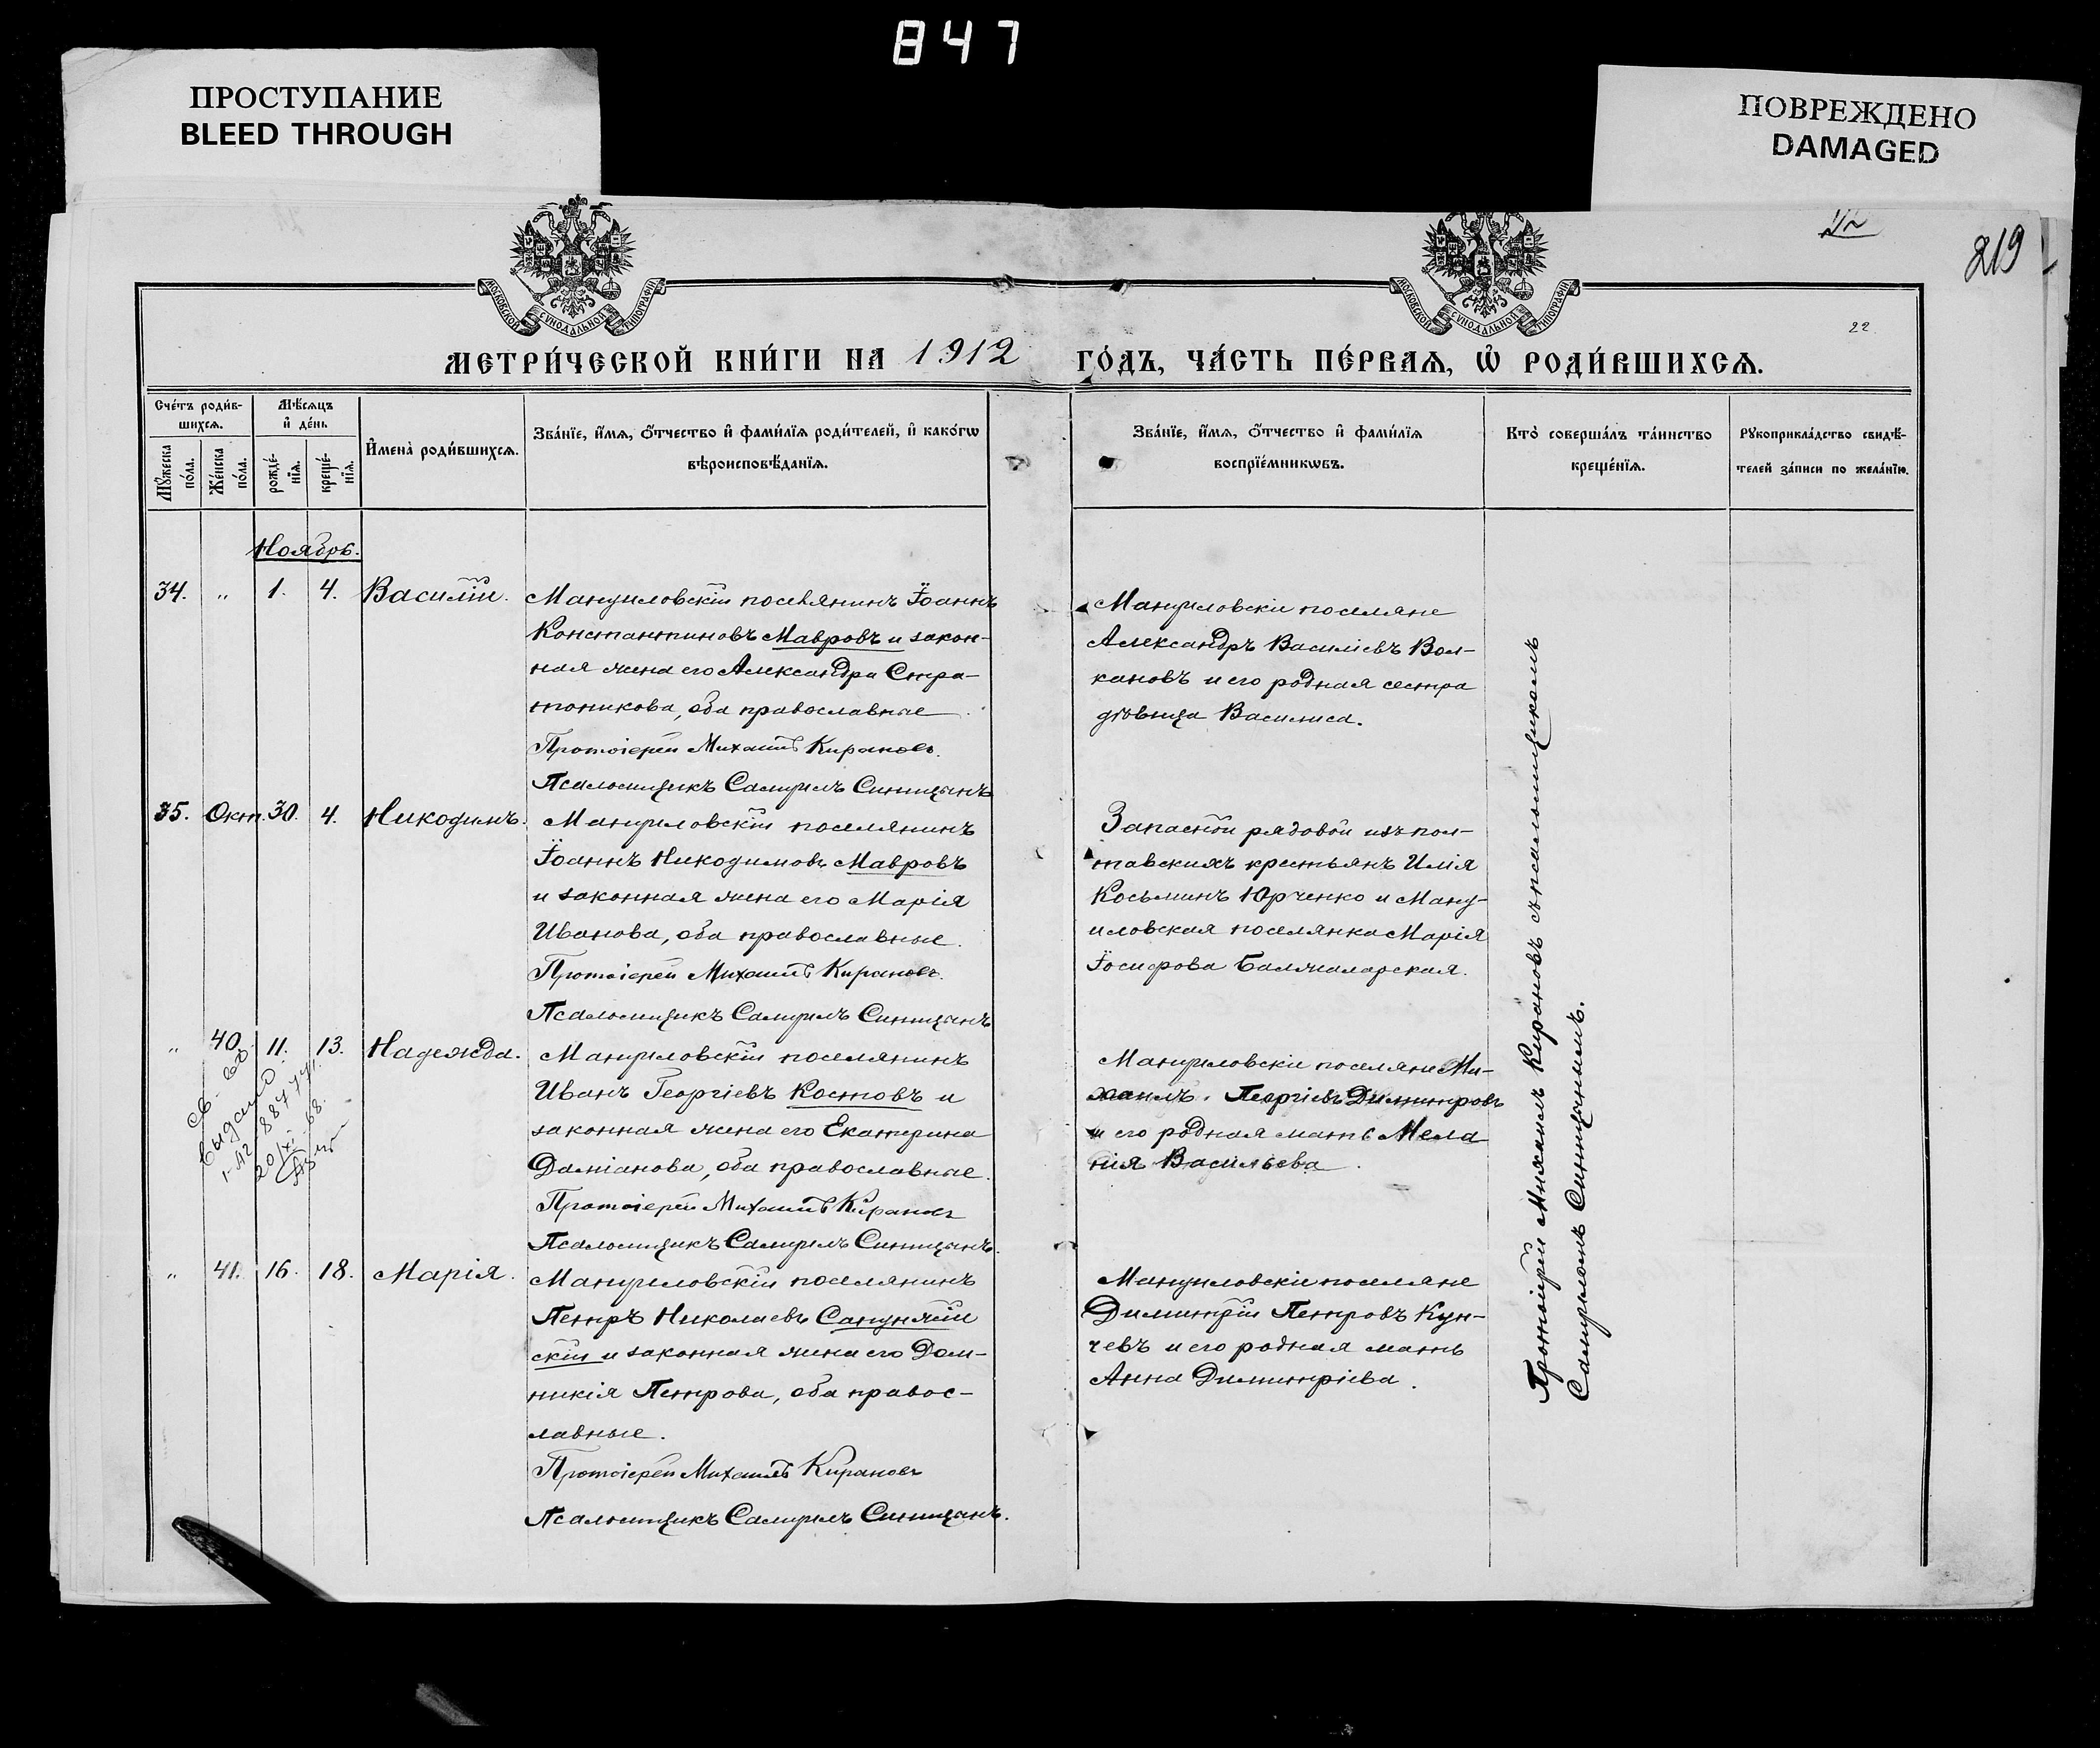 847
ПРОСТУПАНИЕ
BLEED THROUGH
ПОВРЕЖДЕНО
DAMAGED
219
22
МОСКОВСКОЙ СѴНОДАЛЬНОЙ ТИПОГРАФІИ
МОСКОВСКОЙ СѴНОДАЛЬНОЙ ТИПОГРАФІИ
МЕТРИ́ЧЕСКОЙ КНИ́ГИ НА 1912 ГО́ДЪ, ЧА́СТЬ ПЕ́РВАѦ, Ѡ҆ РОДИ́ВШИХСѦ.
Сче́тъ роди́в-
шихсѧ.
Мѣ́сѧцъ
и҆ де́нь
Мꙋ́жеска
по́ла.
Же́нска
по́ла.
рожде́-
нїѧ.
креще́-
нїѧ.
И҆мена̀ роди́вшихсѧ.
Зва́нїе, и҆́мѧ, ѻ҆́тчество и҆ фами́лїѧ роди́телей, и҆ како́гѡ
вѣроисповѣ́данїѧ.
Зва́нїе, и҆́мѧ, ѻ҆́тчество и҆ фами́лїѧ
воспрїе́мникѡвъ.
Кто̀ соверша́лъ та́инство
креще́нїѧ.
Рꙋкоприкла́дство свидѣ́-
телей за́писи по жела́нїю.
Ноябрь.
34. „ 1. 4. Василій.
Мануиловскій поселянинъ Іоаннъ
Константиновъ Мавровъ и закон-
ная жена его Александра Стра-
тоникова, оба православные
Протоіерей Михаилъ Кирановъ.
Псаломщикъ Самуилъ Синицынъ
Мануиловскіе поселяне
Александръ Василіевъ Вол-
кановъ и его родная сестра
дѣвица Василиса.
35. Окт. 30. 4. Никодимъ.
Мануиловскій поселянинъ
Іоаннъ Никодимовъ Мавровъ
и законная жена его Марія
Иванова, оба православные.
Протоіерей Михаилъ Кирановъ.
Псаломщикъ Самуилъ Синицынъ
Запасной рядовой изъ пол-
тавскихъ крестьянъ Илія
Косьминъ Юрченко и Ману-
иловская поселянка Марія
Іосифова Балжаларская.
„ 40. 11. 13. Надежда.
Св-во
выдано
20/XI-68.
Мануиловскій поселянинъ
Иванъ Георгіевъ Костовъ и
законная жена его Екатерина
Даміанова, оба православные.
Протоіерей Михаилъ Кирановъ
Псаломщикъ Самуилъ Синицынъ.
Мануиловскіе поселяне Ми-
хаилъ Георгіевъ Димитровъ
и его родная мать Мела
нія Васильева.
„ 41. 16. 18. Марія.
Мануиловскій поселянинъ
Петръ Николаевъ Сапунжій
скій и законная жена его Дом-
никія Петрова, оба правос-
лавные.
Протоіерей Михаилъ Кирановъ
Псаломщикъ Самуилъ Синицынъ.
Мануиловскіе поселяне
Димитрій Петровъ Кун-
чевъ и его родная мать
Анна Димитріева.
Протоіерей Михаилъ Кирановъ съ псаломщикомъ
Самуиломъ Синицынымъ.